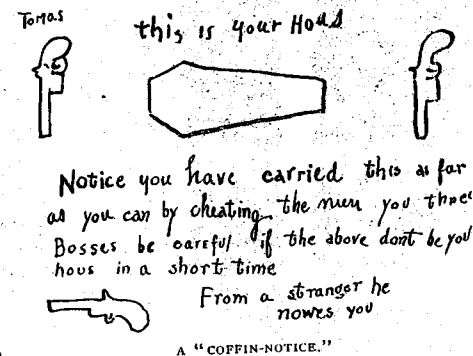 Tomas
this is your Hous
Notice you have carried this as far
as you can by cheating the men you three
Bosses be careful if the above dont be you
hous in a short time
From a stranger he
nowes you
A "COFFIN-NOTICE."